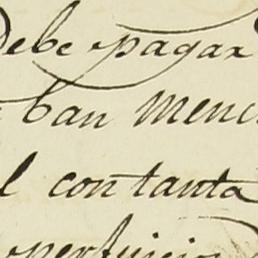 Debe pagar
ban menc
l con tanta